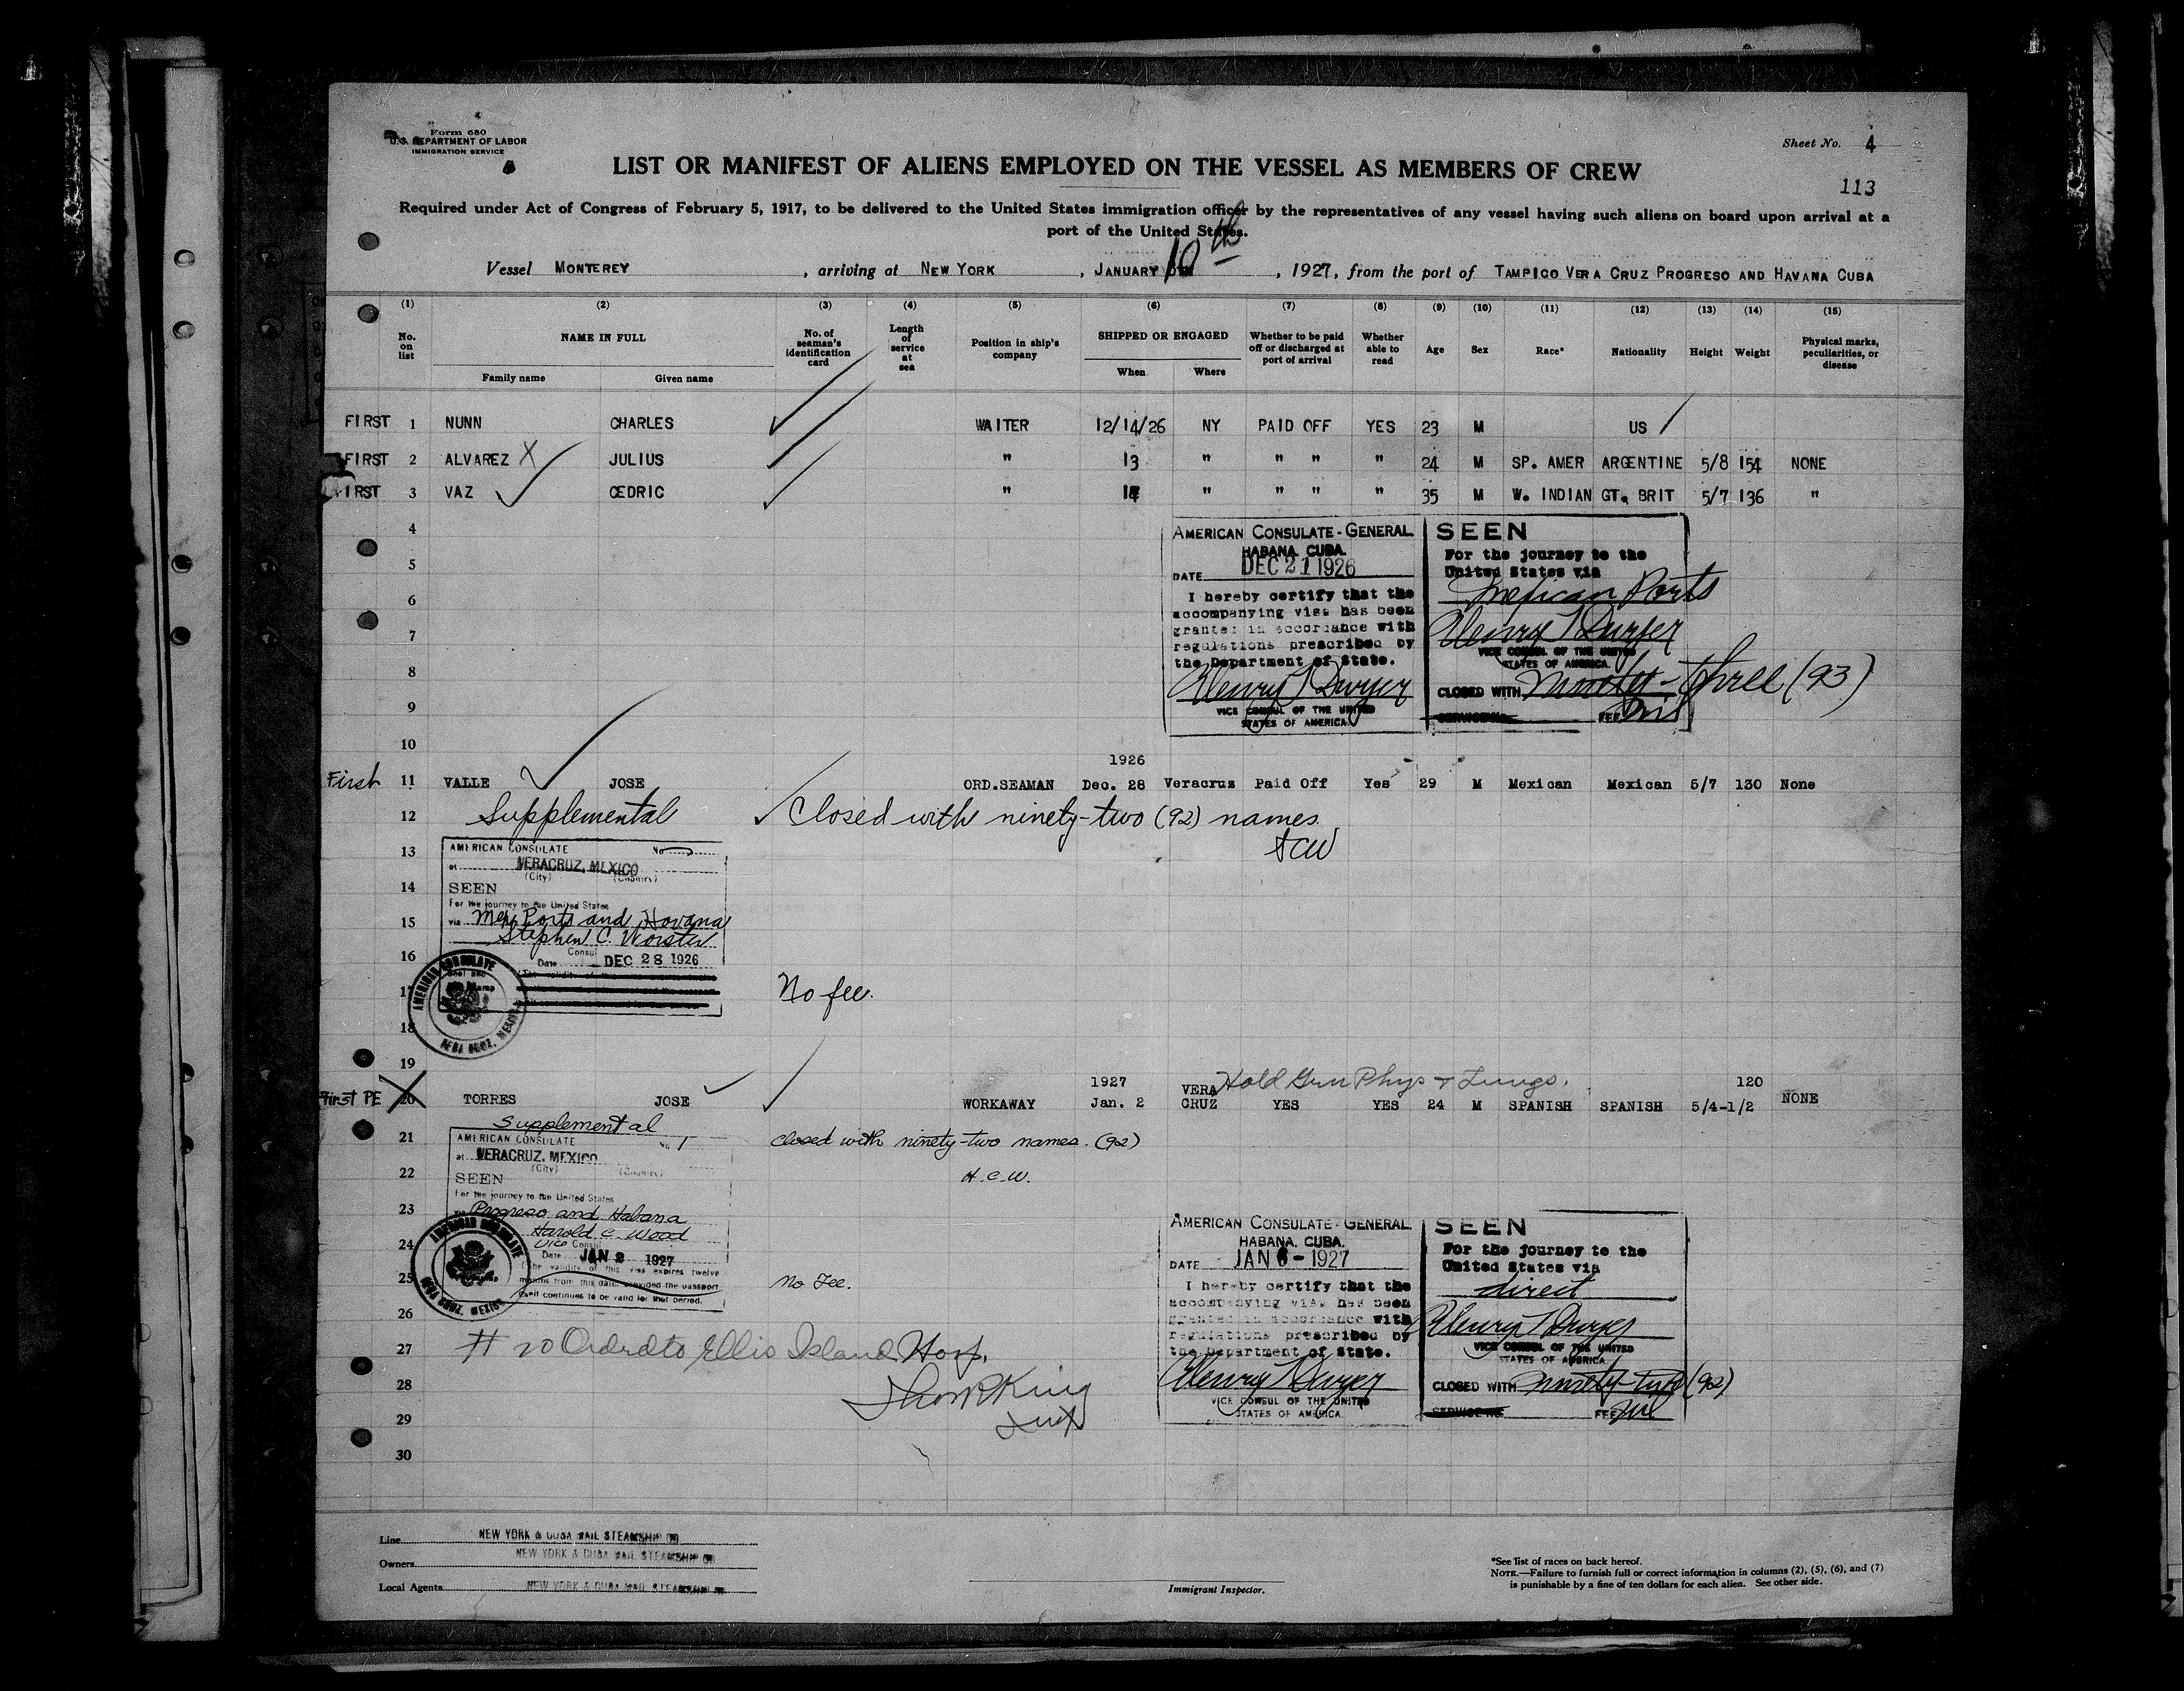 Form 680
U.S. DEPARTMENT OF LABOR
IMMIGRATION SERVICE
Sheet No. 4
LIST OR MANIFEST OF ALIENS EMPLOYED ON THE VESSEL AS MEMBERS OF CREW
113
Required under Act of Congress of February 5, 1917, to be delivered to the United States immigration officer by the representatives of any vessel having such aliens on board upon arrival at a
port of the United States.
Vessel MONTEREY, arriving at NEW YORK, JANUARY 10th, 1927, from the port of TAMPICO VERA CRUZ PROGRESO AND HAVANA CUBA
(1) (2) (3) (4) (5) (6) (7) (8) (9) (10) (11) (12) (13) (14) (15)
No. on list NAME IN FULL Family name Given name No. of seaman's identification card Length of service at sea Position in ship's company SHIPPED OR ENGAGED When Where Whether to be paid off or discharged at port of arrival Whether able to read Age Sex Race* Nationality Height Weight Physical marks, peculiarities, or disease
FIRST 1 NUNN CHARLES WAITER 12/14/26 NY PAID OFF YES 23 M US
FIRST 2 ALVAREZ X JULIUS " 13 " " " " 24 M SP. AMER ARGENTINE 5/8 154 NONE
FIRST 3 VAZ CEDRIC " " " " " 35 M W. INDIAN GT. BRIT 5/7 136 "
4
5
6
7
8
9
10
AMERICAN CONSULATE-GENERAL
HABANA, CUBA.
DATE DEC 21 1926
I hereby certify that the
accompanying visa has been
granted in accordance with
regulations prescribed by
the Department of State.
Henry T Dwyer
VICE CONSUL OF THE UNITED
STATES OF AMERICA.
SEEN
For the journey to the
United States via
Mexican Ports
Henry T Dwyer
VICE CONSUL OF THE UNITED
STATES OF AMERICA.
CLOSED WITH Ninety-three (93)
SERVICE No. FEE Nil
1926
First 11 VALLE JOSE ORD.SEAMAN Dec. 28 Veracruz Paid Off Yes 29 M Mexican Mexican 5/7 130 None
12 Supplemental Closed with ninety-two (92) names.
SCW
13
14
15
16
17
18
19
AMERICAN CONSULATE No
at VERACRUZ, MEXICO
(City) (Country)
SEEN
For the journey to the United States
via Mex Ports and Havana
Stephen C. Worster
Consul
Date DEC 28 1926
AMERICAN CONSULATE
VERA CRUZ, MEXICO
No fee.
1927 VERA Hold Gen Phys & Lungs. 120
First PE 20 TORRES JOSE WORKAWAY Jan. 2 CRUZ YES YES 24 M SPANISH SPANISH 5/4-1/2 NONE
Supplemental
21 closed with ninety-two names. (92)
22 H.C.W.
23
24
25
26
AMERICAN CONSULATE No 1
at VERACRUZ, MEXICO
(City) (Country)
SEEN
For the journey to the United States
via Progreso and Habana
Harold C. Wood
Vice Consul
Date JAN 2 1927
(The validity of this visa expires twelve
months from this date, provided the passport
itself continues to be valid for that period.
AMERICAN CONSULATE
VERA CRUZ, MEXICO
No Fee.
AMERICAN CONSULATE-GENERAL
HABANA, CUBA.
DATE JAN 6 - 1927
I hereby certify that the
accompanying visa has been
granted in accordance with
regulations prescribed by
the Department of State.
Henry T Dwyer
VICE CONSUL OF THE UNITED
STATES OF AMERICA.
SEEN
For the journey to the
United States via
direct
Henry T Dwyer
VICE CONSUL OF THE UNITED
STATES OF AMERICA.
CLOSED WITH ninety-two (92)
SERVICE No. FEE Nil
27 # 20 Ordrd to Ellis Island Hosp.
28 Thos R King
29 Insp
30
Line NEW YORK & CUBA MAIL STEAMSHIP CO
Owners NEW YORK & CUBA MAIL STEAMSHIP CO
Local Agents NEW YORK & CUBA MAIL STEAMSHIP CO
Immigrant Inspector.
*See list of races on back hereof.
NOTE.—Failure to furnish full or correct information in columns (2), (5), (6), and (7)
is punishable by a fine of ten dollars for each alien. See other side.